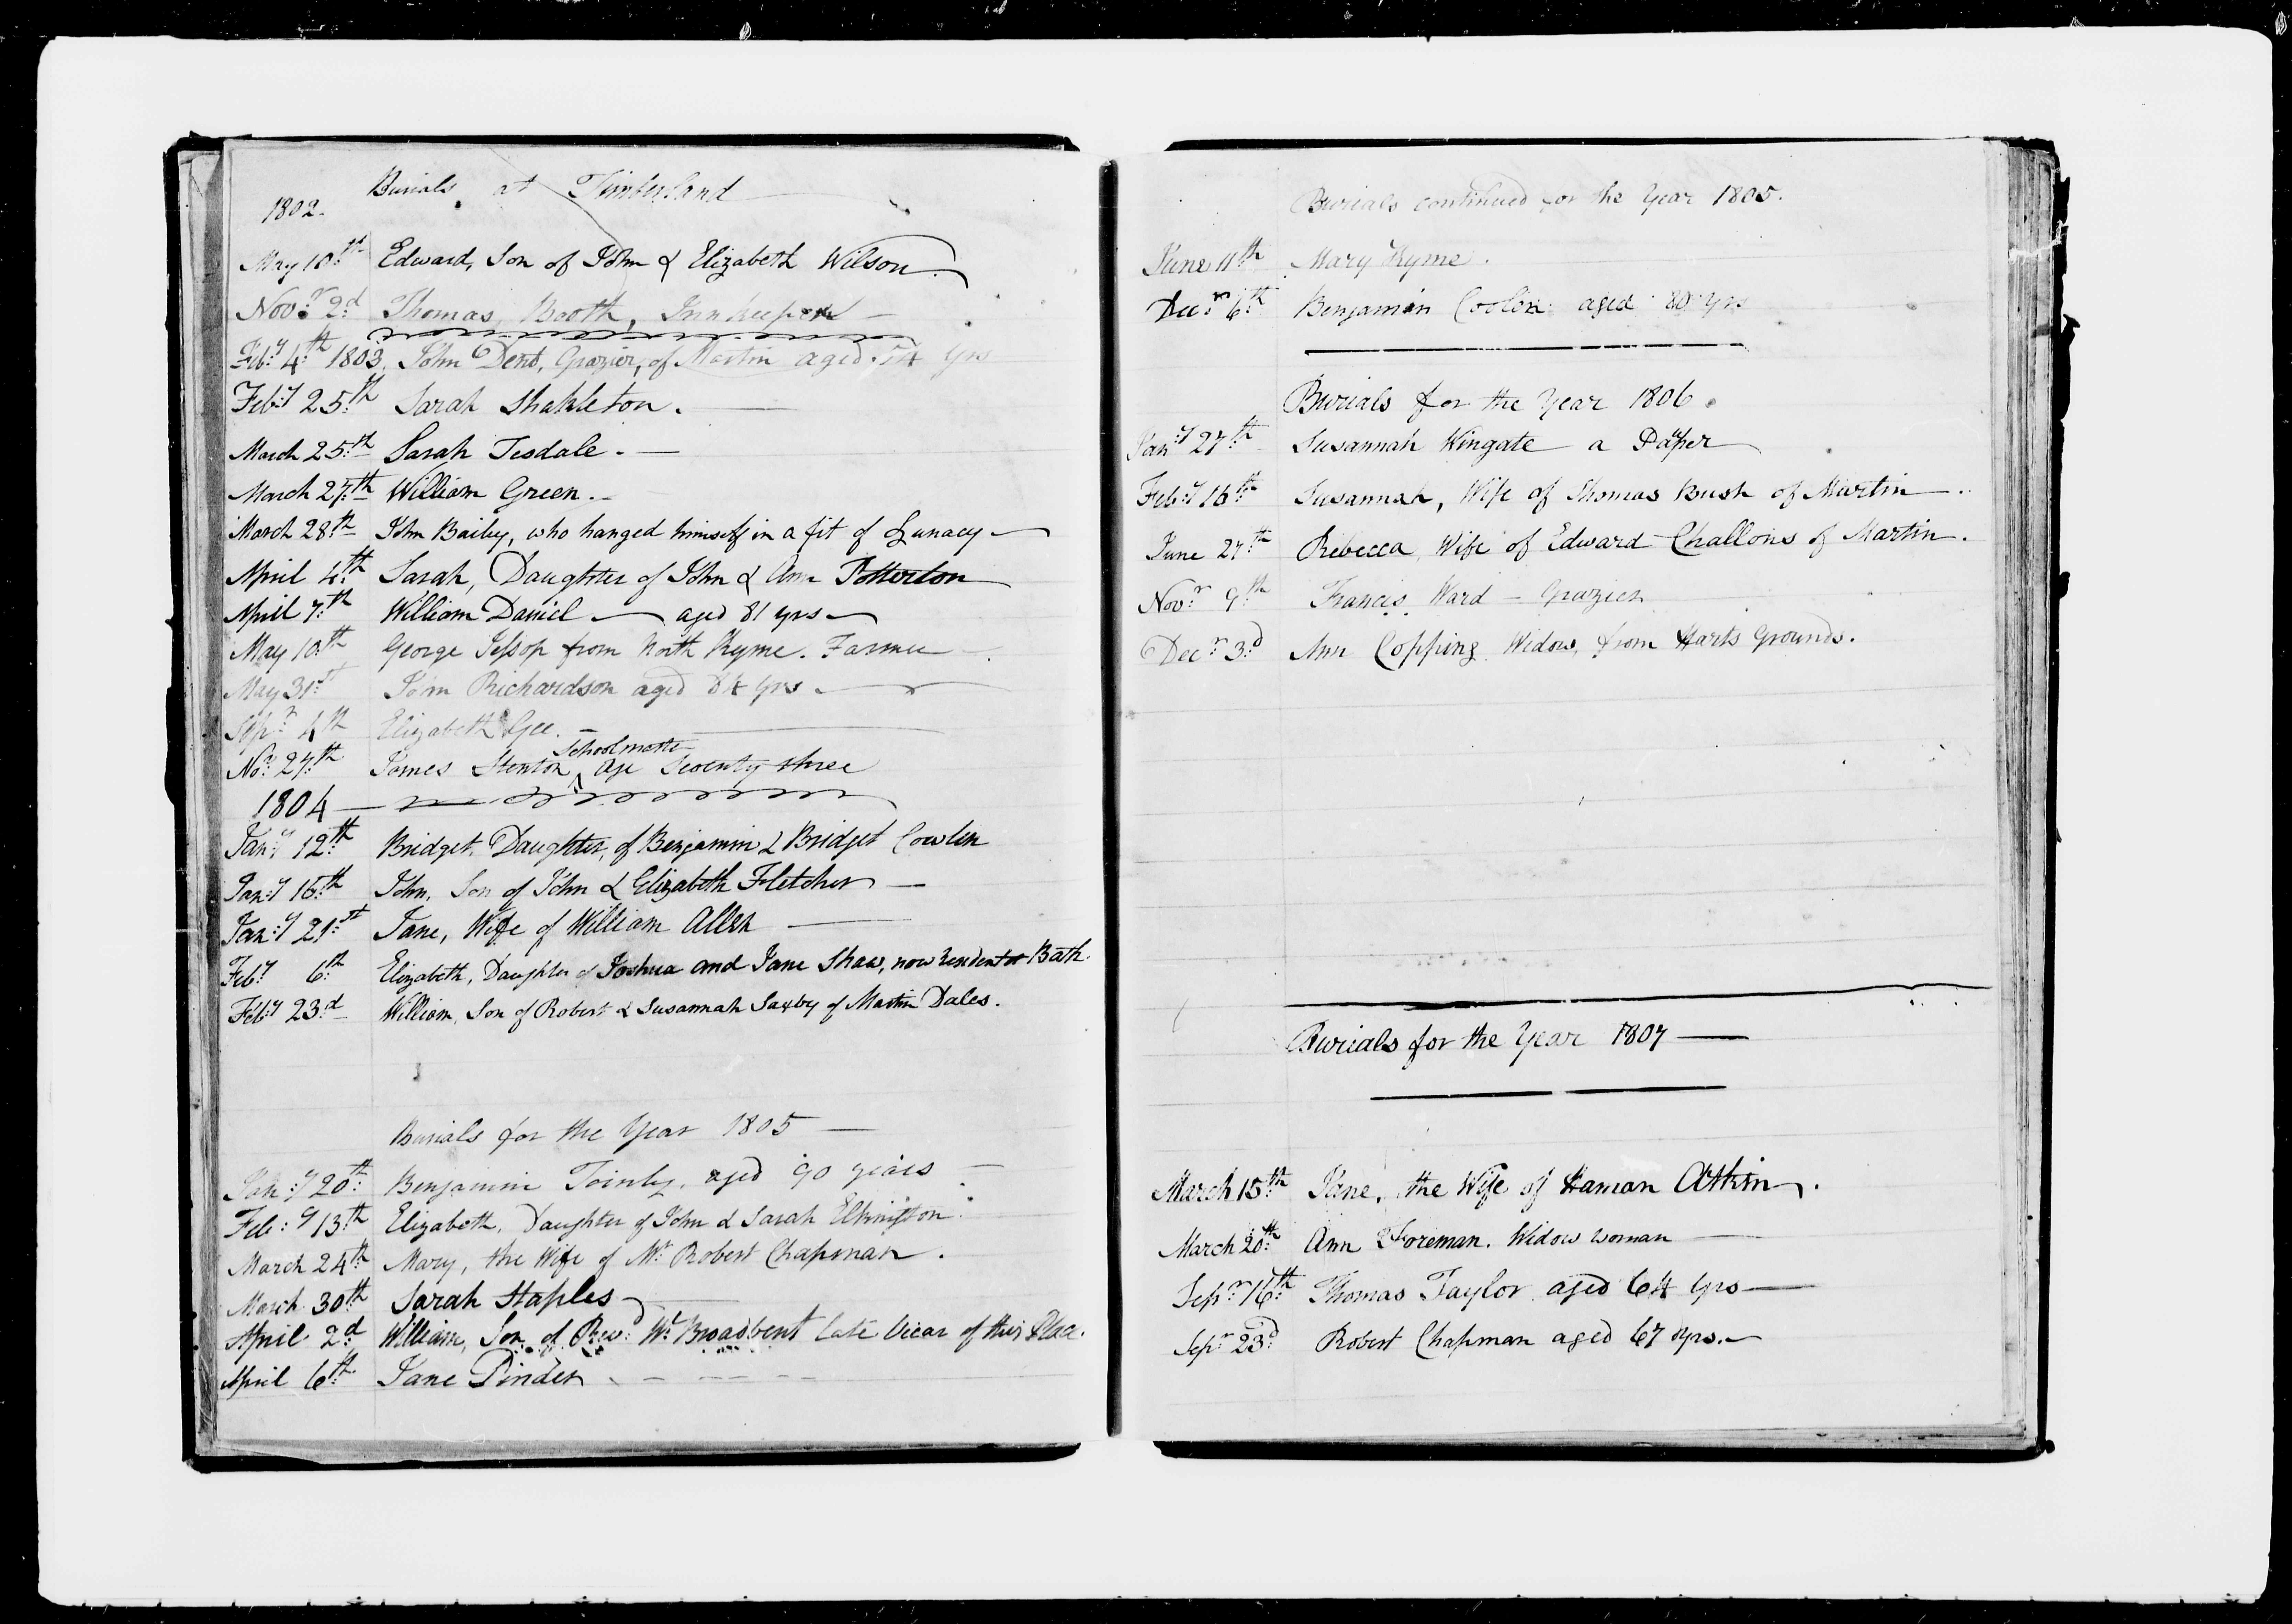 Burials at Timberland
1802.
May 10th Edward, Son of John & Elizabeth Wilson.
Novr 2d Thomas Booth, Innkeeper
Feby 4th 1803, John Dent, Grazier, of Martin aged 54 yrs
Feby 25th Sarah Shakleton.
March 25th Sarah Tesdale.
March 27th William Green.
March 28th John Bailey, who hanged himself in a fit of Lunacy
April 4th Sarah, Daughter of John & Ann Potterton
April 7th William Daniel aged 81 yrs
May 10th George Jessop from North Kyme. Farmer
May 31st John Richardson aged 84 yrs.
Sepr 4th Elizabeth Gee.
Schoolmaster
Nor 27th James Stenton, Age Seventy three
1804
Jany 12th Bridget, Daughter, of Benjamin & Bridget Cowlen
Jany 16th John, Son of John & Elizabeth Fletcher
Jany 21st Jane, Wife of William Allen
Feby 6th Elizabeth, Daughter of Joshua and Jane Shaw, now resident at Bath.
Feby 23d William, Son of Robert & Susannah Saxby of Martin Dales.
Burials for the Year 1805
Jany 20th Benjamin Tointy, aged 90 years
Feby 13th Elizabeth, Daughter of John & Sarah Elkington
March 24th Mary, the Wife of Mr Robert Chapman.
March 30th Sarah Staples
April 2d William, Son of Revd Wm Broadbent late Vicar of this Place.
April 6th Jane Pinder
Burials continued for the Year 1805.
June 11th Mary Kyme.
Decr 6th Benjamin Coolin aged 80 yrs
Burials for the Year 1806.
Jany 27th Susannah Wingate a Pauper
Feby 16th Susannah, Wife of Thomas Bush of Martin
June 27th Rebecca Wife of Edward Challons of Martin.
Novr 9th Francis Ward - Grazier
Decr 3d Ann Copping Widow, from Harts Grounds.
Burials for the Year 1807
March 15th Jane, the Wife of Haman Atkin.
March 20th Ann Foreman. Widow woman
Sepr 16th Thomas Taylor aged 64 yrs
Sepr 23d Robert Chapman aged 67 yrs.